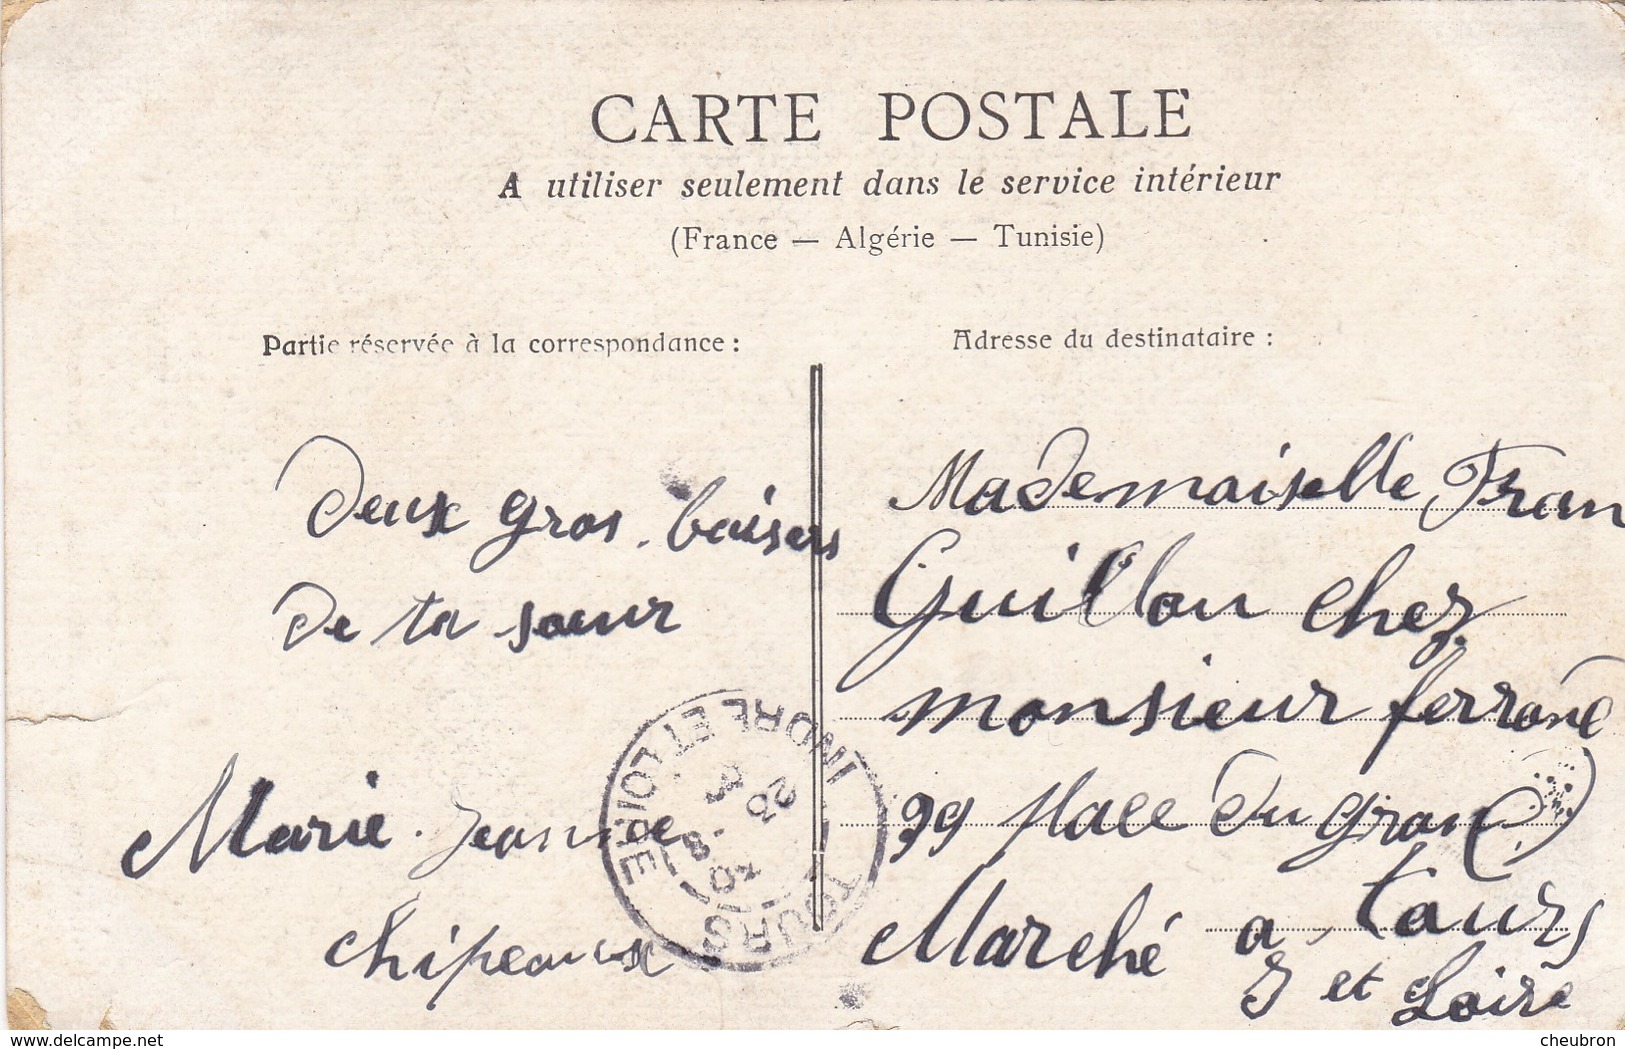 CARTE POSTALE
A utiliser seulement dans le service intérieur
(France — Algérie — Tunisie)
Partie réservée à la correspondance :
Adresse du destinataire :
Deux gros baisers
de ta sœur
Marie Jeanne
chipeaux
Mademoiselle Fran
Guillon chez
monsieur
99 place du gran
Marché a tours
I et Loire
TOURS
INDRE ET LOIRE
23 -8
www.delcampe.net
cheubron